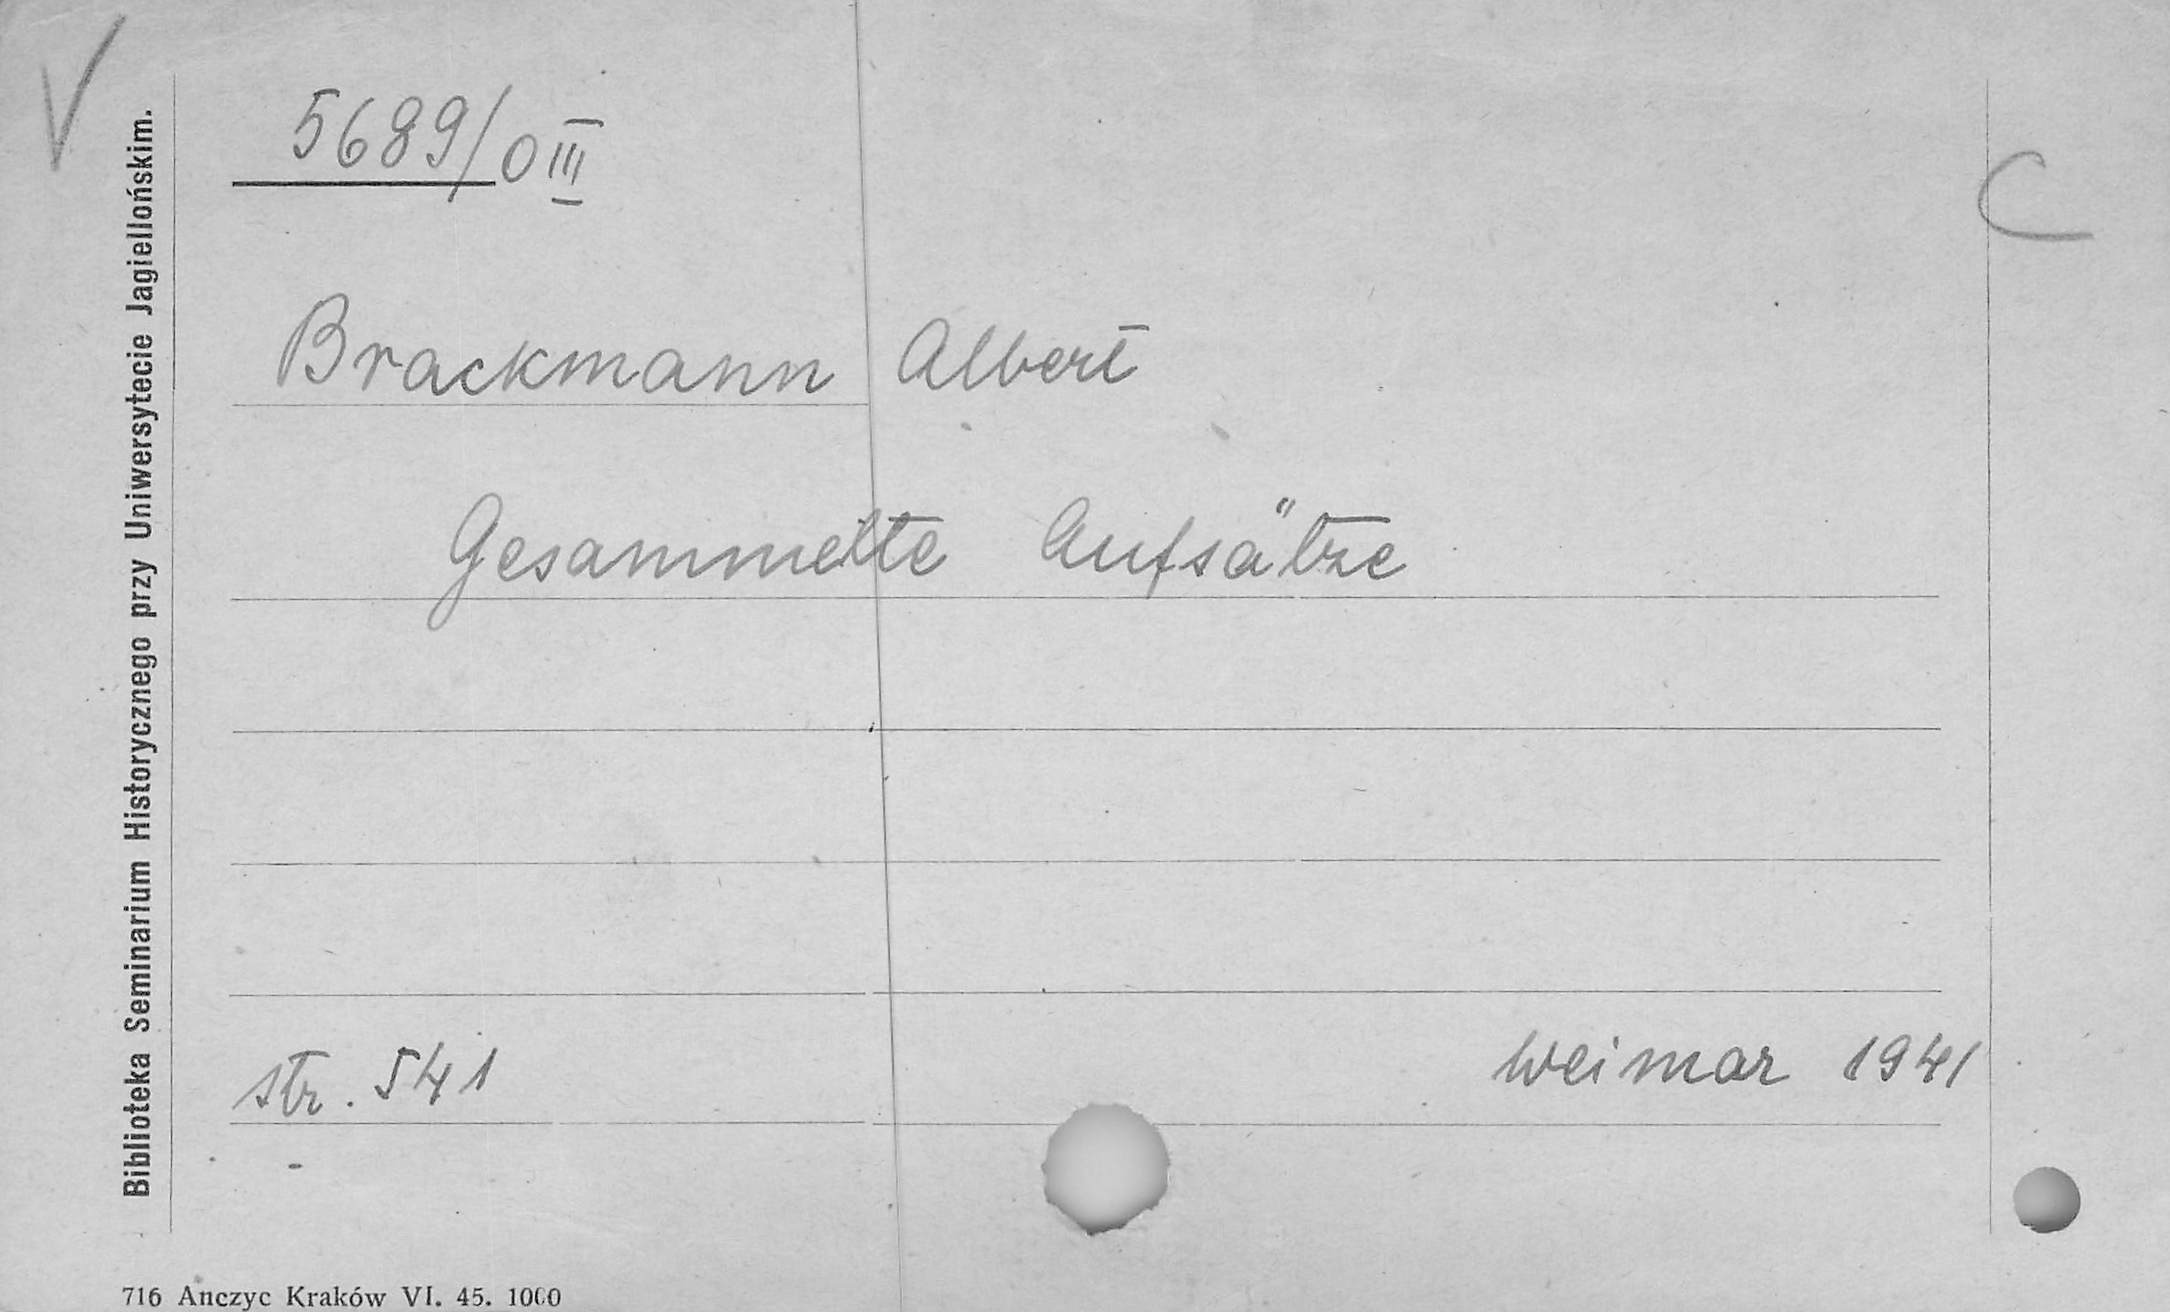 5689/0 III
C
Brackmann Albert
Gesammelte Aufsätze
str. 541 Weimar 1941
Biblioteka Seminarium Historycznego przy Uniwersytecie Jagiellońskim.
716 Anczyc Kraków VI. 45. 1000